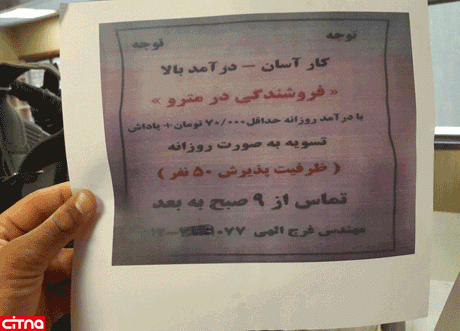 توجه توجه
کار آسان – درآمد بالا
« فروشندگی در مترو »
با درآمد روزانه حداقل ۷۰/۰۰۰ تومان + پاداش
تسویه به صورت روزانه
( ظرفیت پذیرش ۵۰ نفر )
تماس از ۹ صبح به بعد
مهندس فرج الهی ۰۷۷
citna